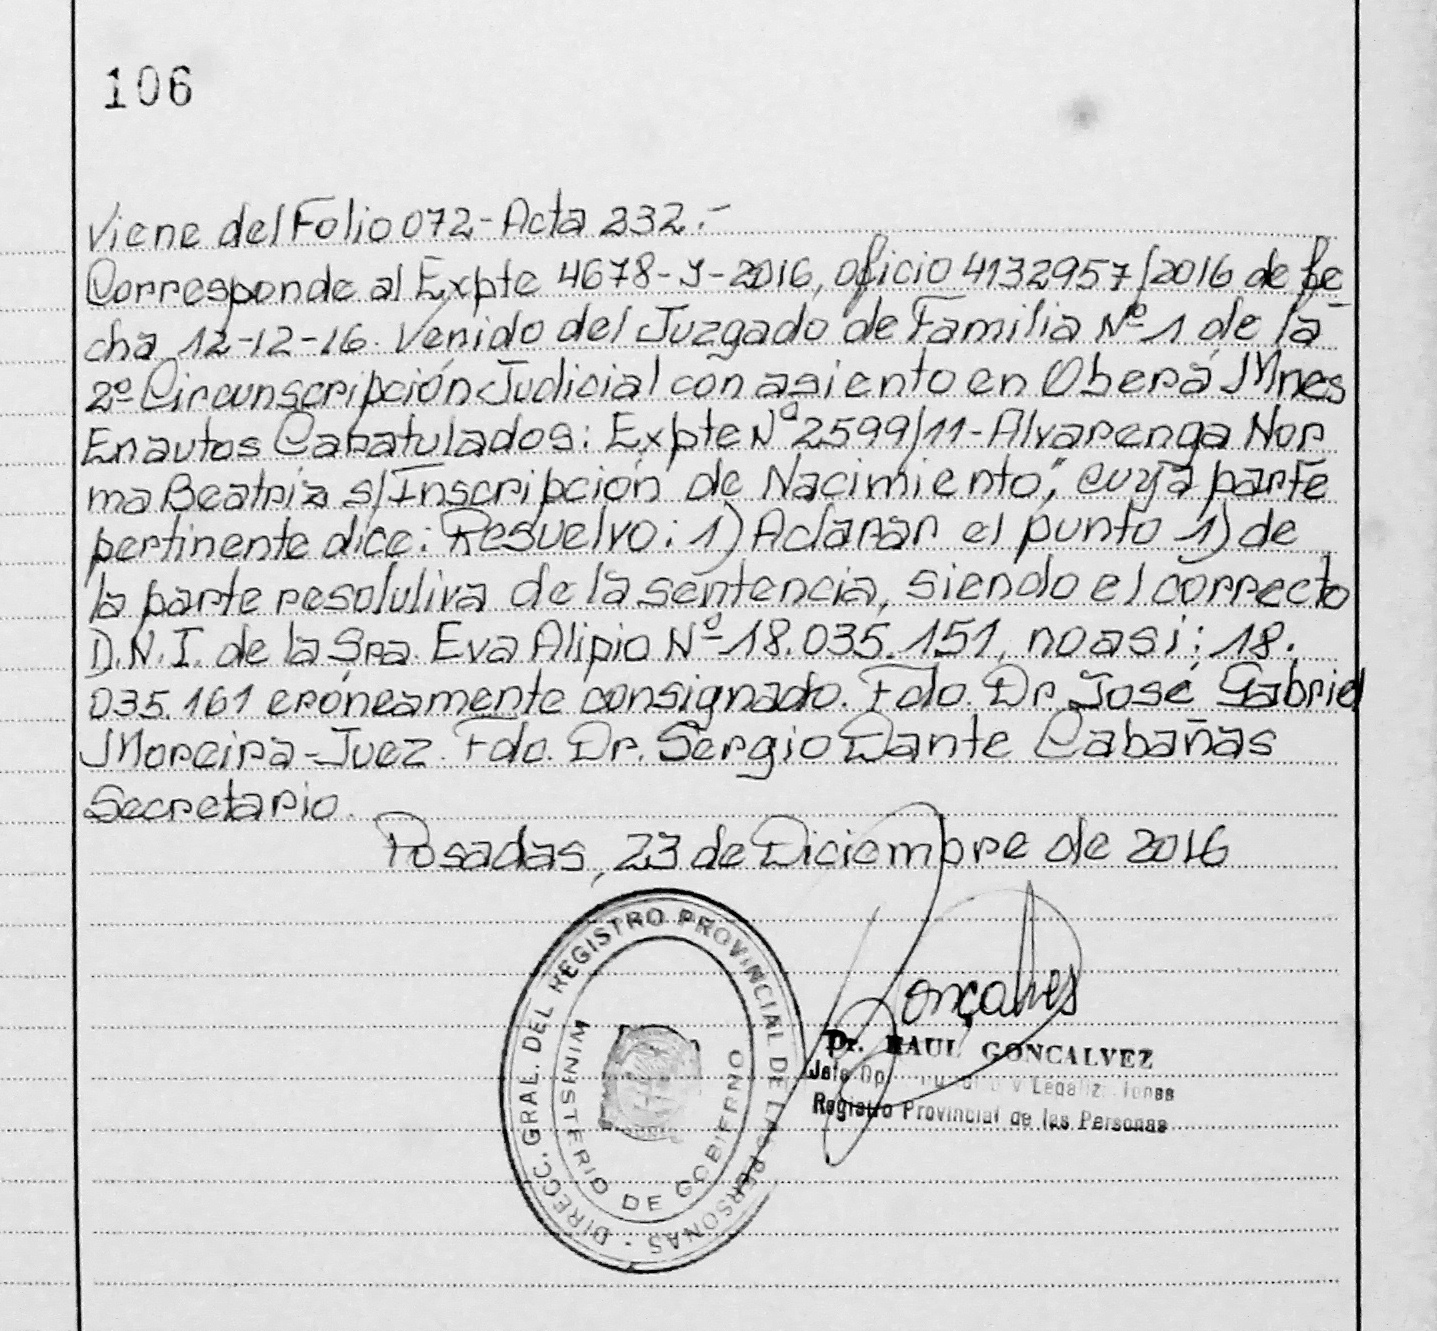 106
Viene del Folio 072-Acta 232.-
Corresponde al Expte 4678-J-2016, oficio 4132957/2016 de fe
cha 12-12-16. Venido del Juzgado de Familia Nº 1 de la
2º Circunscripción Judicial con asiento en Oberá Mnes
En autos Cabatulados: Expte Nº 2599/11-Alvarenga Nor
ma Beatriz s/Inscripción de Nacimiento", cuya parte
pertinente dice: Resuelvo: 1) Aclarar el punto 1) de
la parte resolutiva de la sentencia, siendo el correcto
D.N.I. de la Sra. Eva Alipio Nº 18.035.151, no asi: 18.
035.161 eróneamente consignado. Fdo. Dr. José Gabriel
Moreira-Juez. Fdo. Dr. Sergio Dante Cabañas
Secretario.
Posadas, 23 de Diciembre de 2016
DIRECC. GRAL. DEL REGISTRO PROVINCIAL DE LAS PERSONAS -
MINISTERIO DE GOBIERNO
Gonçalves
Dr. RAUL GONCALVEZ
Jefe Dp. y Legaliz iones
Registro Provincial de las Personas